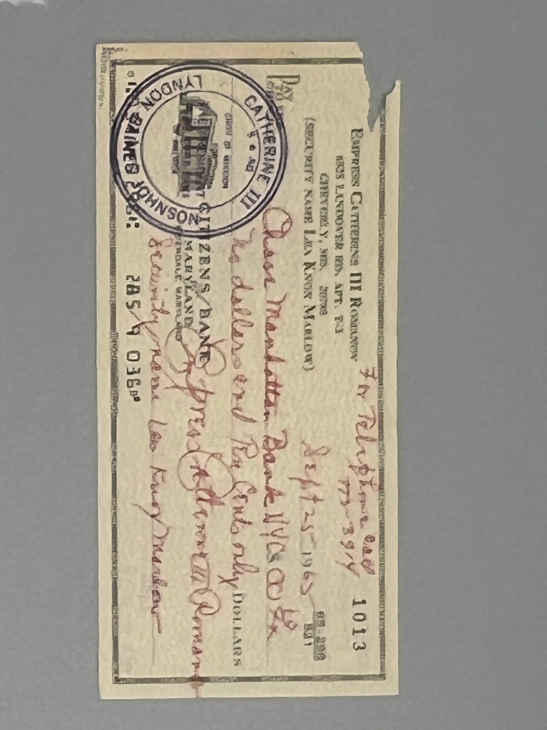 EMPRESS CATHERINE III ROMANOV
6825 LANDOVER RD. APT. T-3
CHEVERLY, MD. 20785
(SECURITY NAME LEA KNOX MARLOW)
For Telephone call
773-3914
1013
Sept 25 1965
65-298
521
PAY
TO THE
Chase Manhattan Bank NYC
No dollars and Ten Cents only DOLLARS
CITIZENS BANK
MARYLAND
RIVERDALE, MARYLAND
CATHERINE III
LYNDON BAINES JOHNSON
Empress Catherine III Romanov
Security name Lea Knox Marlow
285 9 036